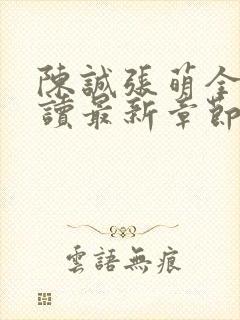 陳誠張萌全
讀最新章節
雲語無痕